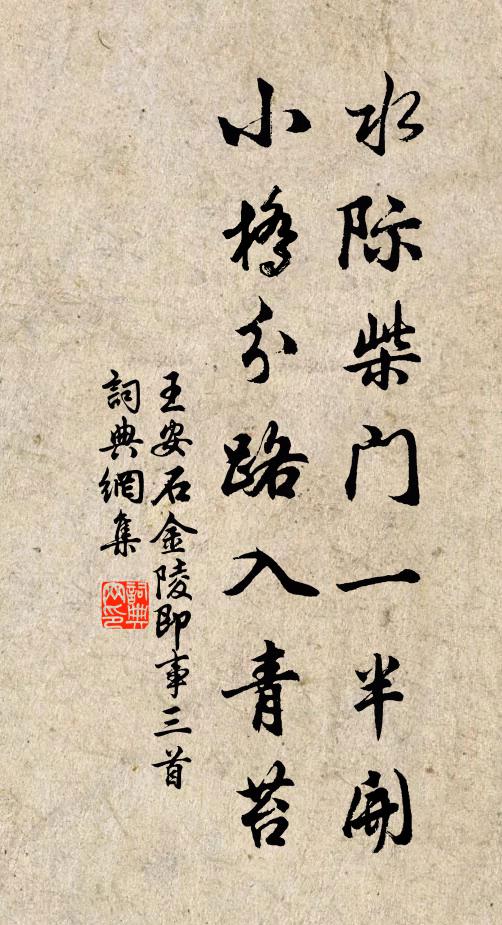 水际柴门一半开
小桥分路入青苔
王安石金陵即事三首
詞典網集
詞典網印